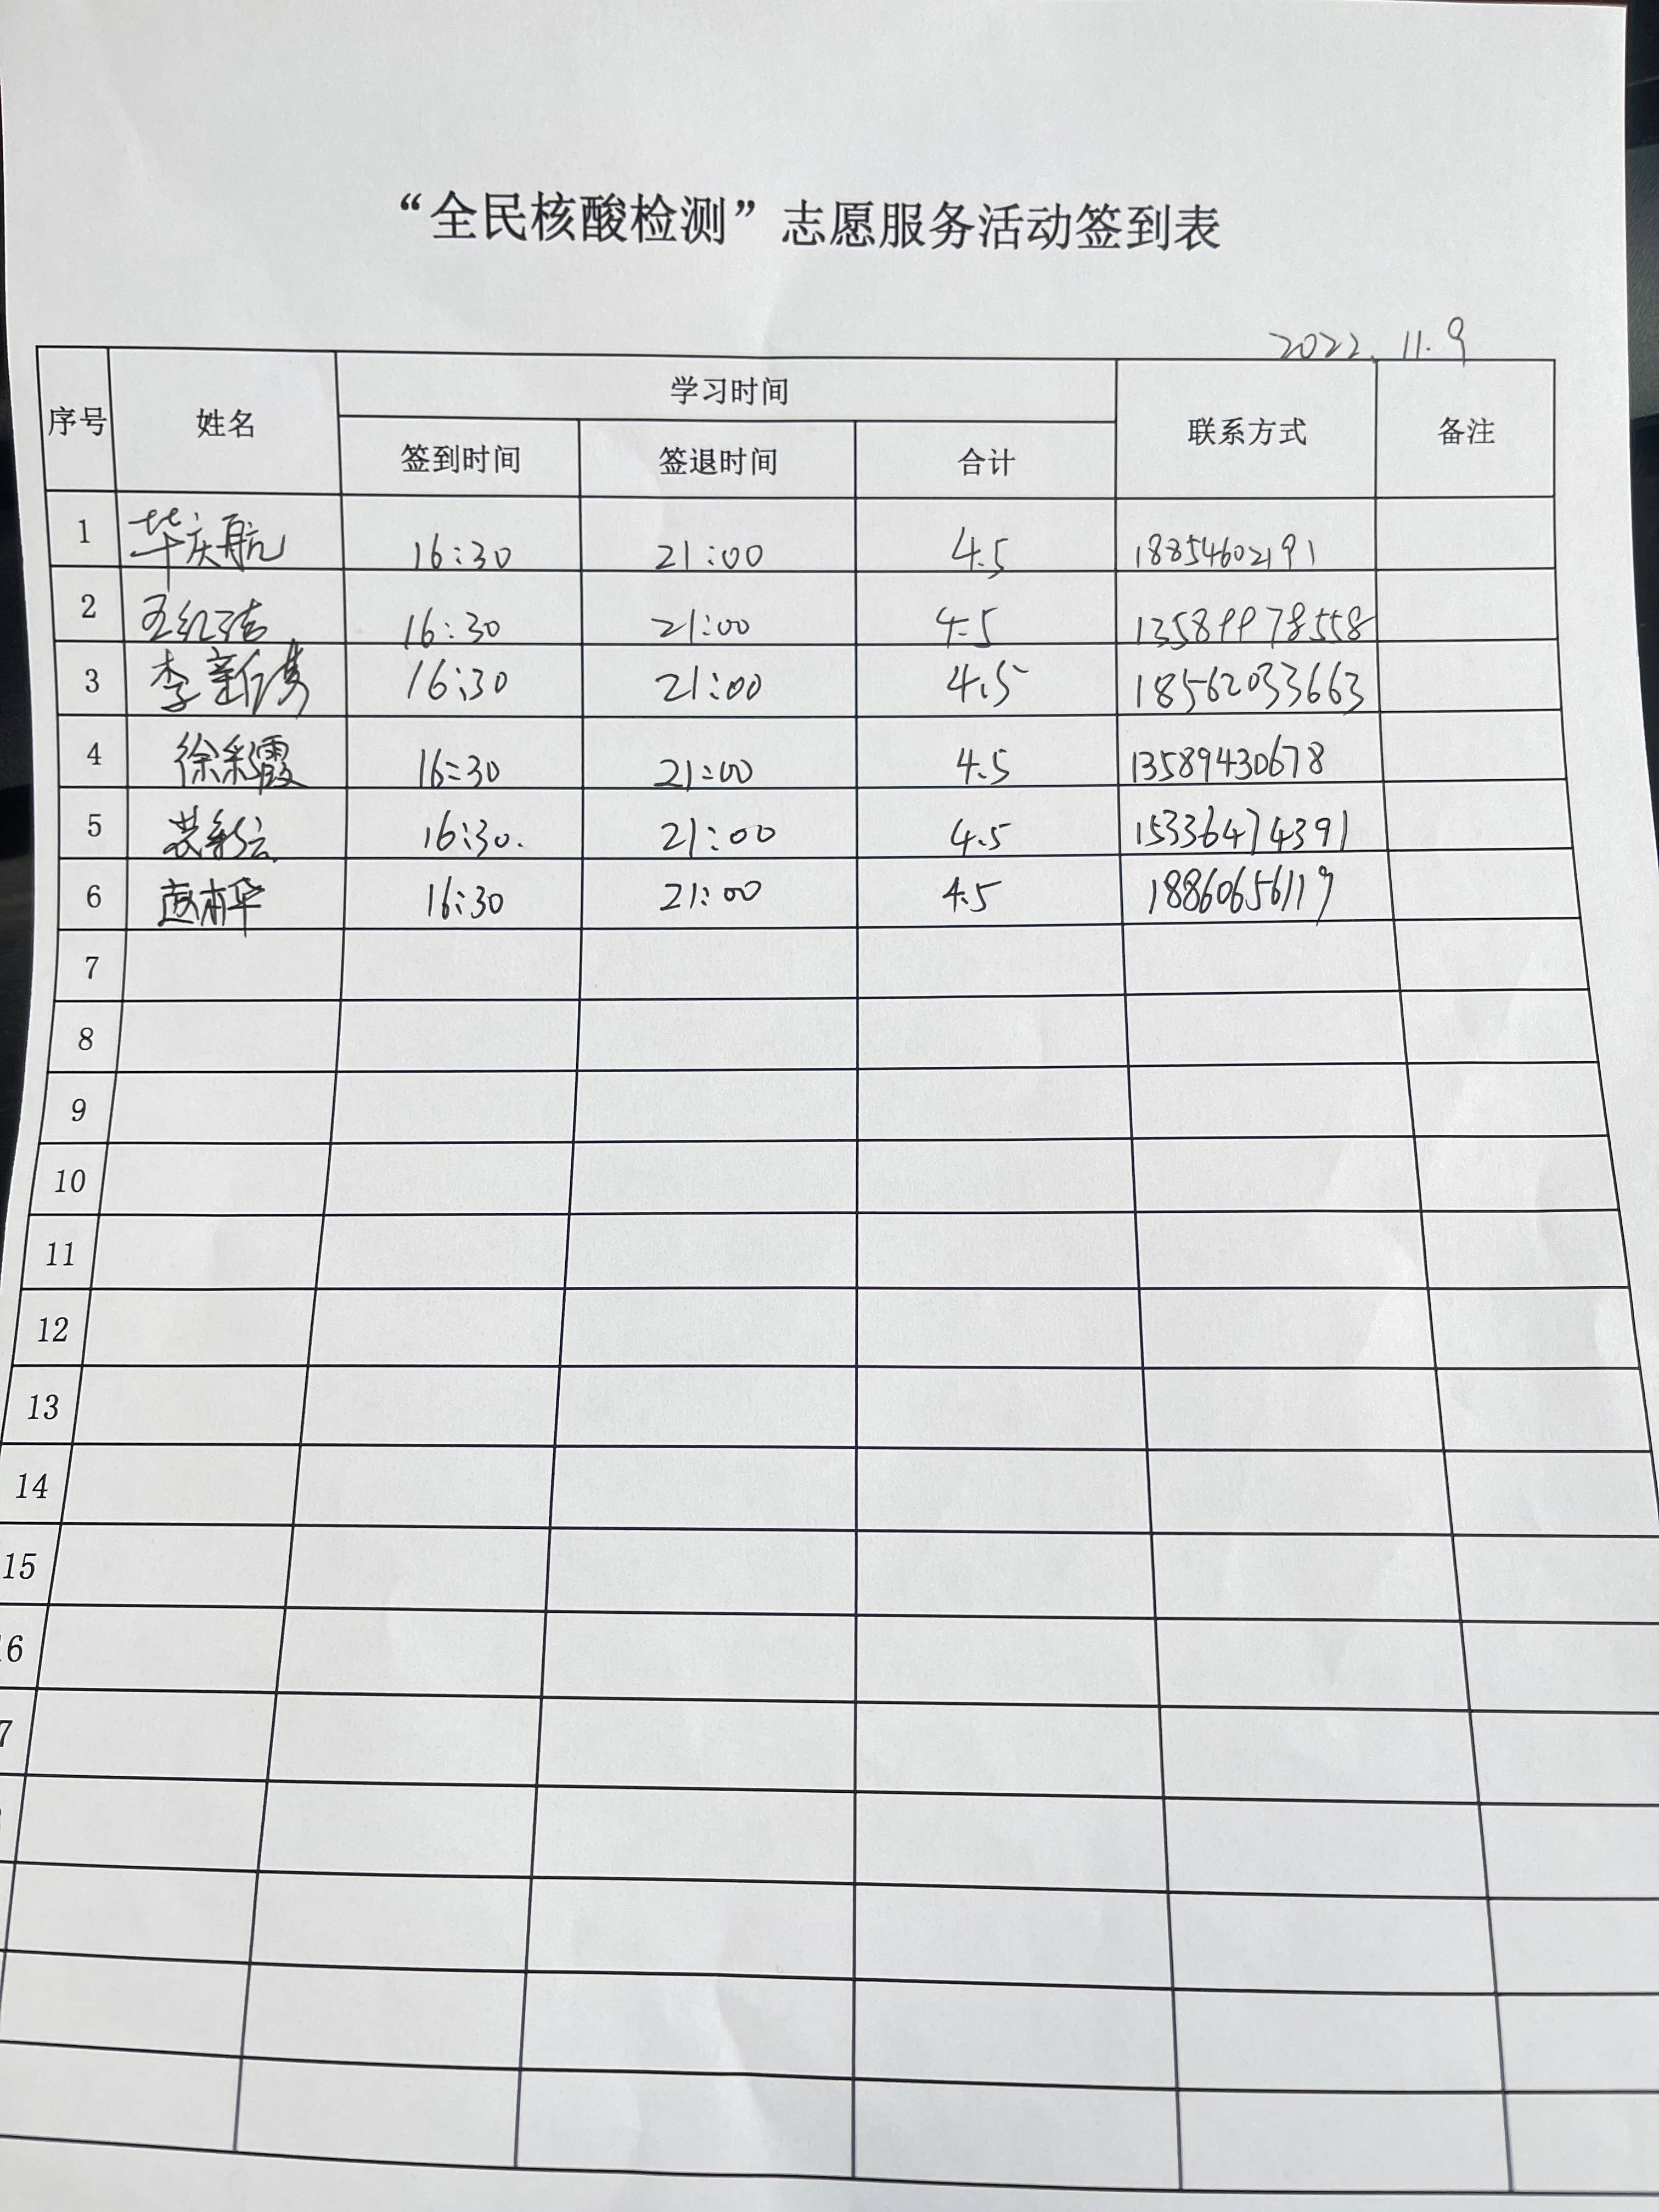 “全民核酸检测”志愿服务活动签到表
2022.11.9
序号 姓名 学习时间 联系方式 备注
签到时间 签退时间 合计
1 毕庆航 16:30 21:00 4.5 18854602191
2 王红洁 16:30 21:00 4.5 13589978558
3 李新儒 16:30 21:00 4.5 18562033663
4 徐彩霞 16:30 21:00 4.5 13589430678
5 16:30. 21:00 4.5 15336474391
6 赵树华 16:30 21:00 4.5 18860656119
7
8
9
10
11
12
13
14
15
16
7